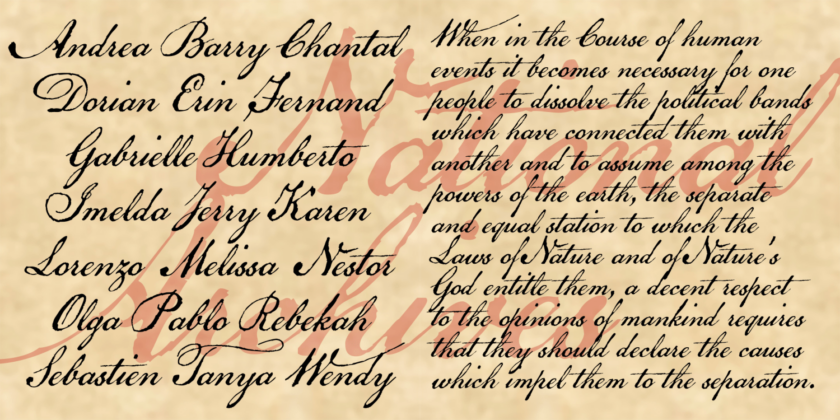 Andrea Barry Chantal
Dorian Erin Fernand
Gabrielle Humberto
Imelda Jerry Karen
Lorenzo Melissa Nestor
Olga Pablo Rebekah
Sebastien Tanya Wendy
When in the Course of human
events it becomes necessary for one
people to dissolve the political bands
which have connected them with
another and to assume among the
powers of the earth, the separate
and equal station to which the
Laws of Nature and of Nature's
God entitle them, a decent respect
to the opinions of mankind requires
that they should declare the causes
which impel them to the separation.
National
Archives